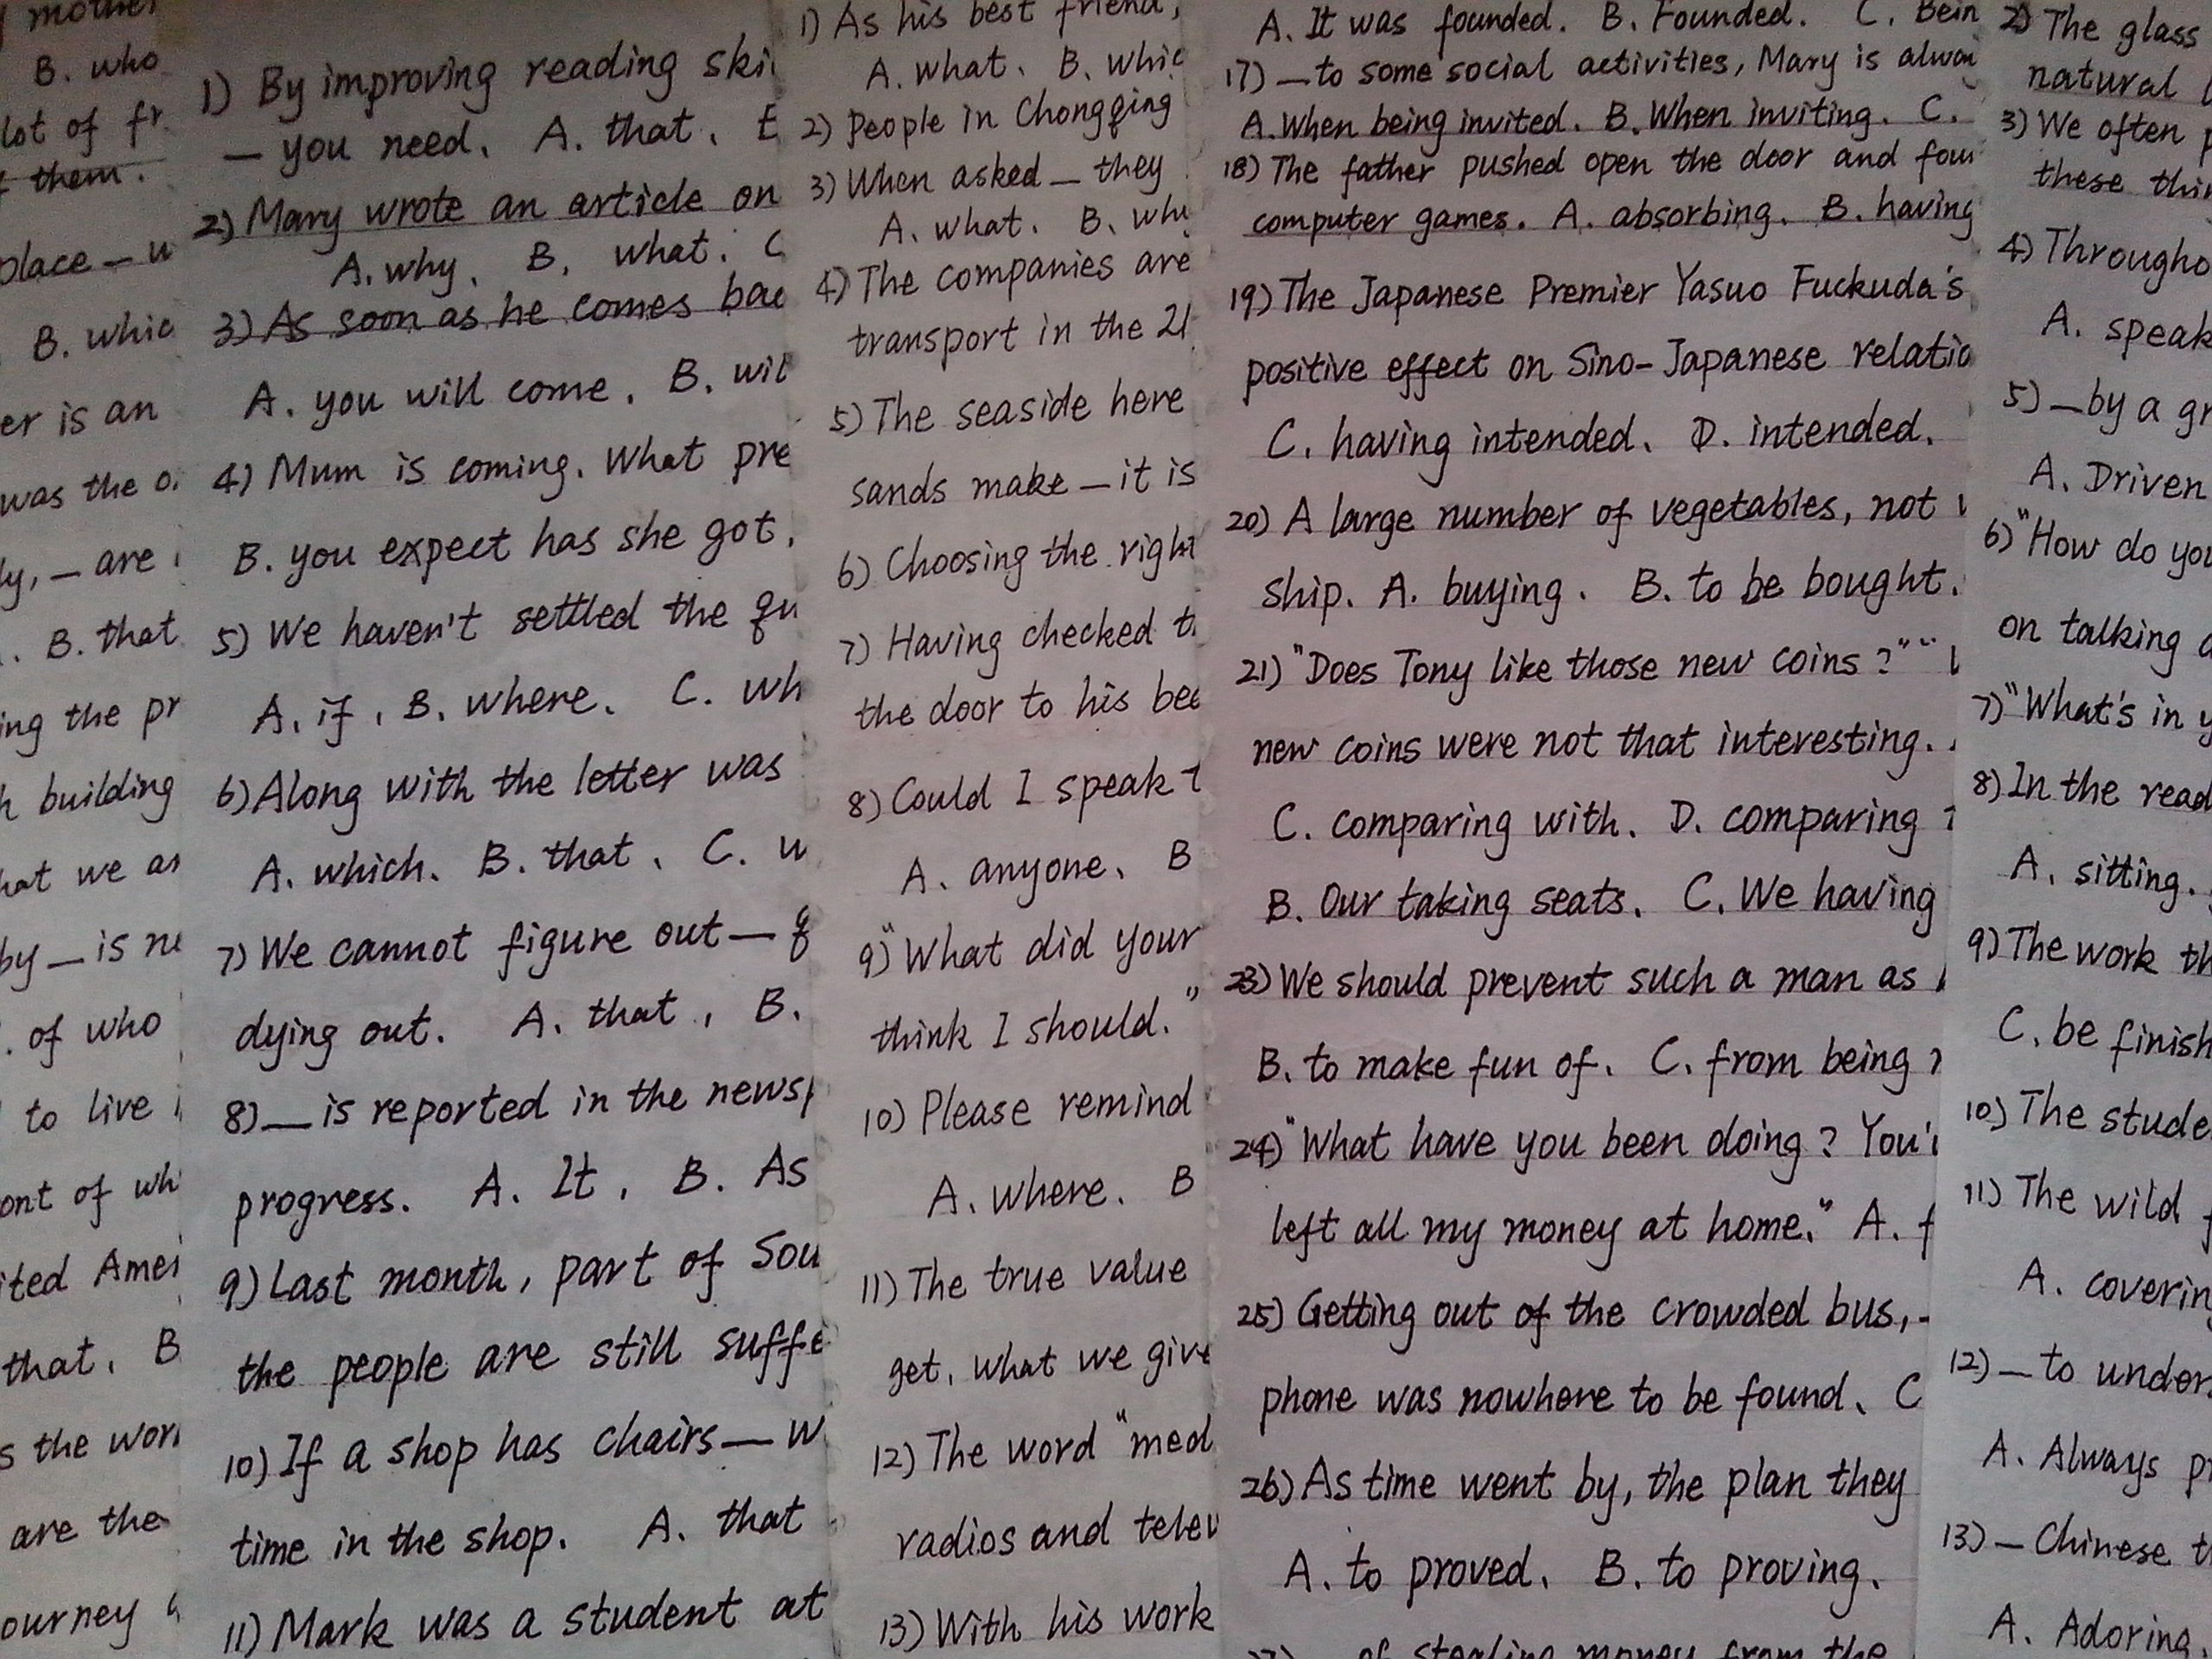 mother
B. who
lot of fr
them.
place — w
B. whic
er is an
was the o
ly, — are
. B. that
ing the pr
h building
hat we as
by — is ne
. of who
to live
ont of wh
ited Amei
that. B
s the wor
are the
ourney
1) By improving reading ski
— you need. A. that.
2) Mary wrote an article on
A. why. B. what. C
3) As soon as he comes bac
A. you will come. B. wil
4) Mum is coming. What pre
B. you expect has she got.
5) We haven't settled the qu
A. if. B. where. C. wh
6) Along with the letter was
A. which. B. that. C. w
7) We cannot figure out — q
dying out. A. that. B.
8) — is reported in the newsp
progress. A. It. B. As
9) Last month, part of Sou
the people are still suffe
10) If a shop has chairs — w
time in the shop. A. that
11) Mark was a student at
1) As his best friend,
A. what. B. whic
2) People in Chongqing
3) When asked — they
A. what. B. wh
4) The companies are
transport in the 21
5) The seaside here
sands make — it is
6) Choosing the right
7) Having checked t
the door to his bee
8) Could I speak t
A. anyone. B
9) "What did your
think I should."
10) Please remind
A. where. B
11) The true value
get, what we give
12) The word "med
radios and telev
13) With his work
A. It was founded. B. Founded. C. Bein
17) — to some social activities, Mary is alway
A. When being invited. B. When inviting. C.
18) The father pushed open the door and foun
computer games. A. absorbing. B. having
19) The Japanese Premier Yasuo Fuckuda's
positive effect on Sino-Japanese relatio
C. having intended. D. intended.
20) A large number of vegetables, not
ship. A. buying. B. to be bought.
21) "Does Tony like those new coins?" "
new coins were not that interesting.
C. comparing with. D. comparing
B. Our taking seats. C. We having
23) We should prevent such a man as
B. to make fun of. C. from being
24) "What have you been doing? You'
left all my money at home." A. f
25) Getting out of the crowded bus, -
phone was nowhere to be found. C
26) As time went by, the plan they
A. to proved. B. to proving.
of stealing money from the
2) The glass
natural
3) We often p
these thin
4) Througho
A. speak
5) — by a gr
A. Driven
6) "How do you
on talking a
7) "What's in y
8) In the read
A. sitting.
9) The work th
C. be finish
10) The stude
11) The wild f
A. coverin
12) — to under
A. Always pr
13) — Chinese t
A. Adoring.